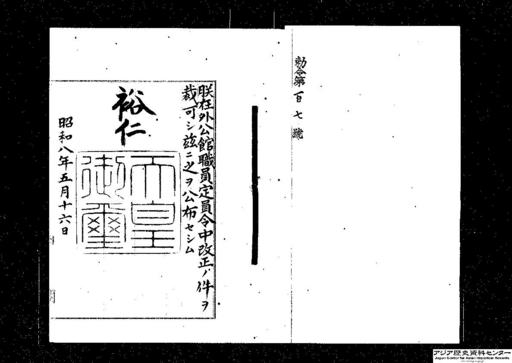 勅令第百七號
朕在外公館職員定員令中改正ノ件ヲ
裁可シ茲ニ之ヲ公布セシム
裕仁
天皇
御璽
昭和八年五月十六日
アジア歴史資料センター
Japan Center for Asian Historical Records